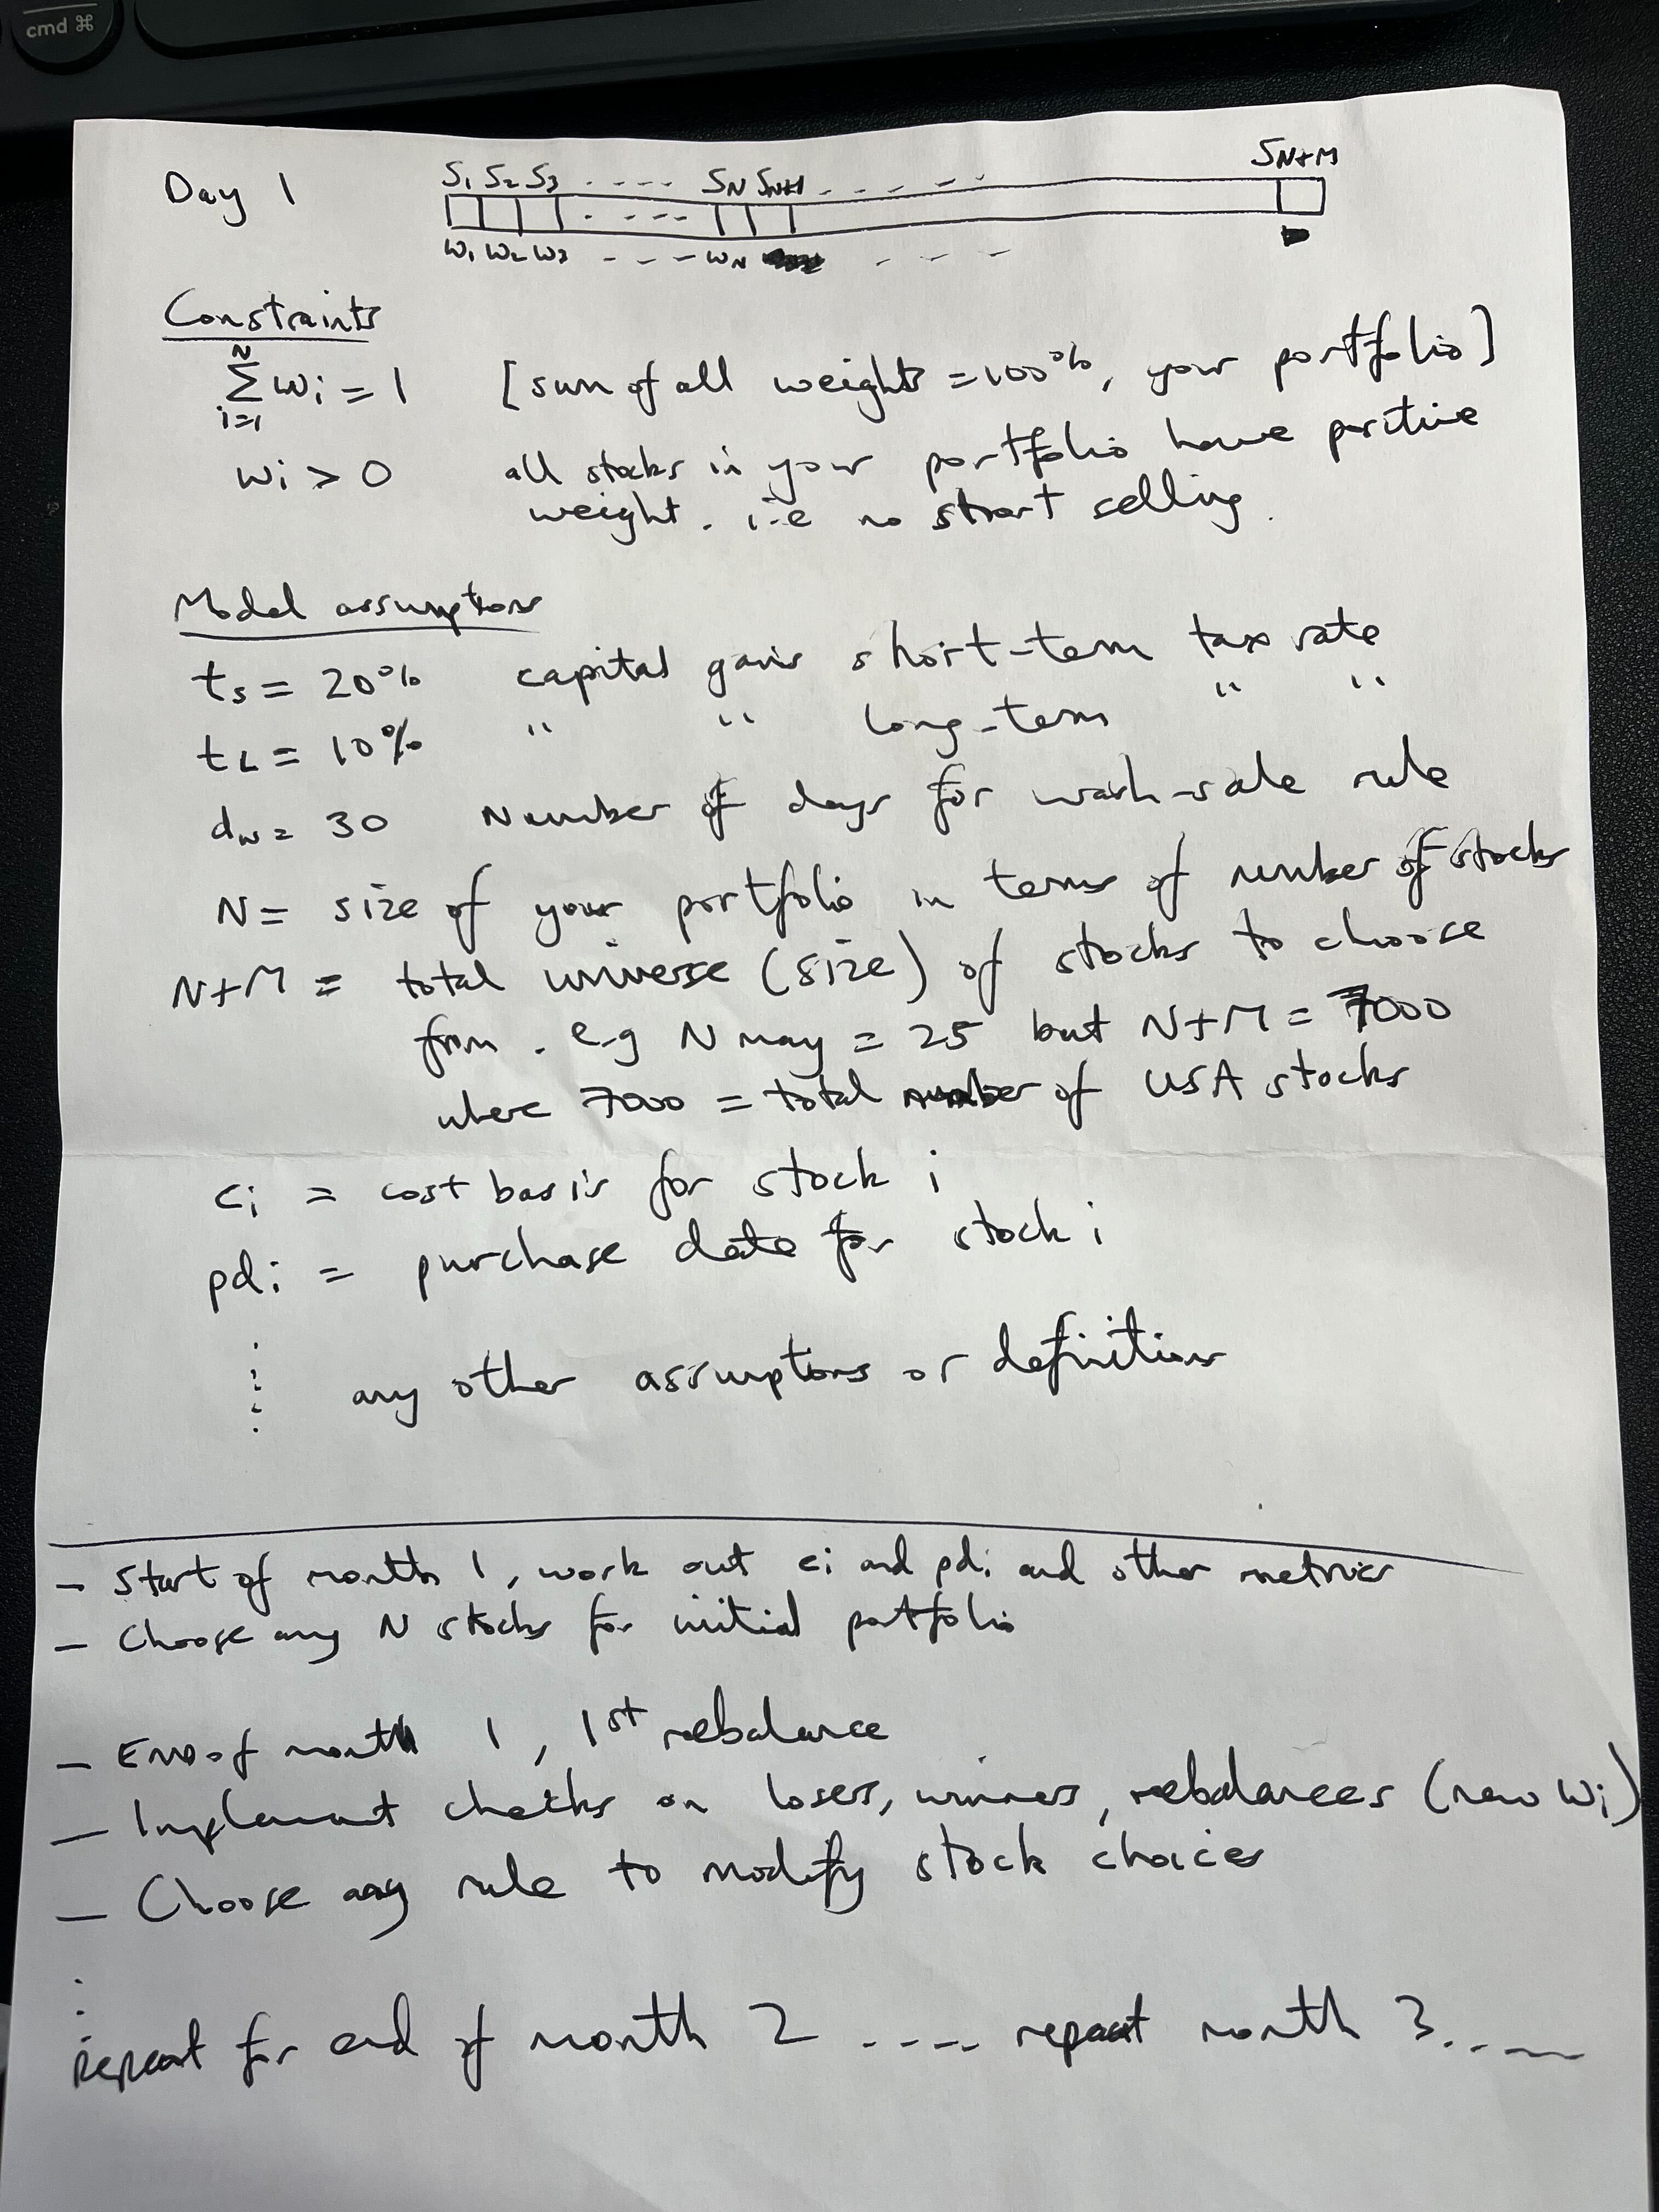 cmd ⌘
Day 1
S1 S2 S3 ---- SN SN+1 ---- SN+M
w1 w2 w3 ---- wN ---
Constraints
N
Σ wi = 1 [sum of all weights = 100%, your portfolio]
i=1
wi > 0 all stocks in your portfolio have positive
weight. i.e no short selling.
Model assumptions
ts = 20% capital gains short-term tax rate
tL = 10% " " long-term " "
dw = 30 Number of days for wash-sale rule
N = size of your portfolio in terms of number of stocks
N+M = total universe (size) of stocks to choose
from. e.g N may = 25 but N+M = 7000
where 7000 = total number of USA stocks
ci = cost basis for stock i
pdi = purchase date for stock i
⋮ any other assumptions or definitions
- Start of month 1, work out ci and pdi and other metrics
- Choose any N stocks for initial portfolio
- End of month 1, 1st rebalance
- Implement checks on losers, winners, rebalances (new wi)
- Choose any rule to modify stock choices
⋮
repeat for end of month 2 .... repeat month 3.....